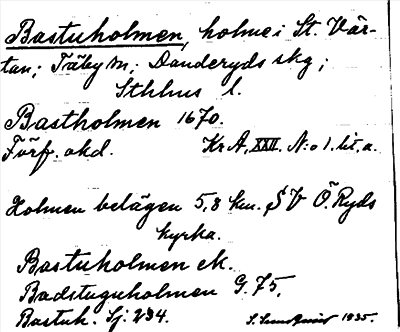 Bastuholmen, holme i St. Vär-
tan; Täby sn; Danderyds skg;
Sthlms l.
Bastholmen 1670.
Förf. okd. Kr A, XXII. N:o 1. lit. a.
Holmen belägen 5,8 km. SV Ö Ryds
kyrka.
Bastuholmen eK.
Badstuguholmen G. 75.
Bastuh. Sj: 234.
S. Lundquist 1935.